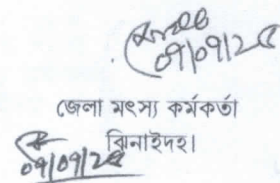 ০৭/০৭/২৫
জেলা মৎস্য কর্মকর্তা
ঝিনাইদহ।
০৭/০৭/২৫